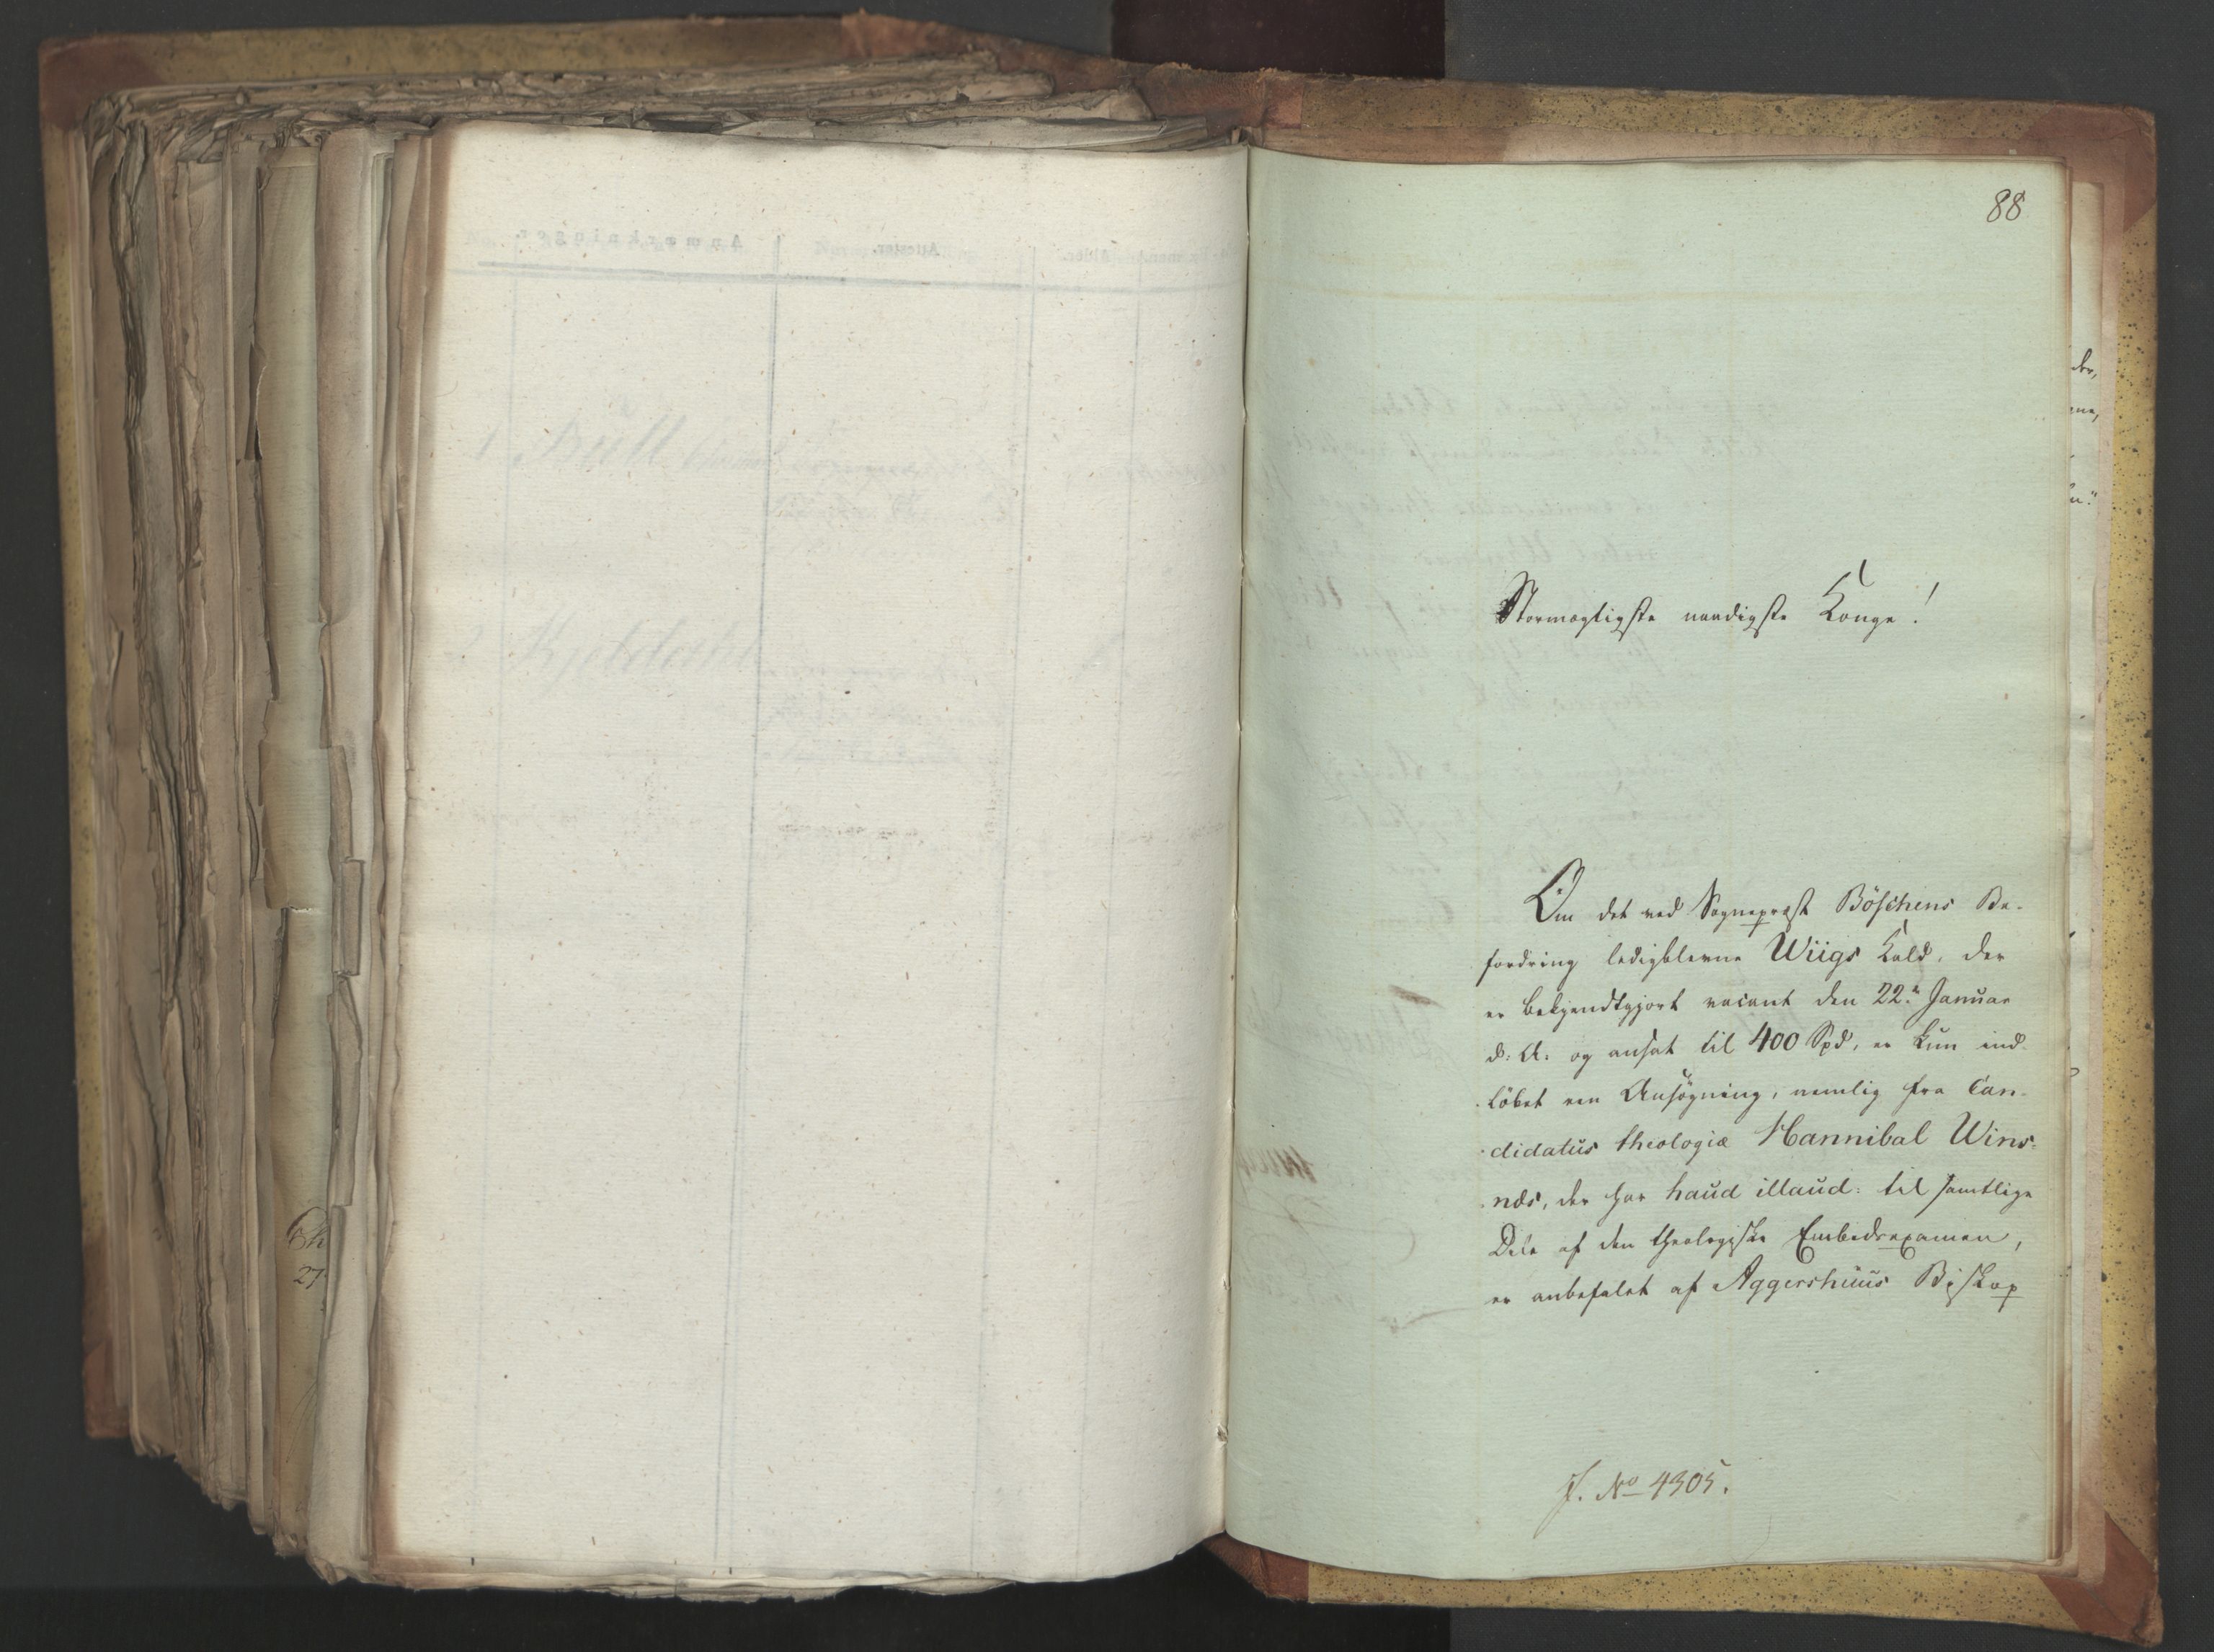 88
Stormægtigste naadigste Konge!
Om det ved Sognepræst Böschens Be-
fordring ledigblevne Wiigs Kald, der
er bekjendtgjort vacant den 22.ᵈᵉ Januar
d: A: og ansat til 400 Spd, er kun ind-
löbet een Ansögning, nemlig fra Can-
didatus theologiæ Hannibal Wins-
næs, der har haud illaud: til samtlige
Dele af den theologiske Embedsexamen,
er anbefalet af Aggershuus Biskop
J. No 4305.